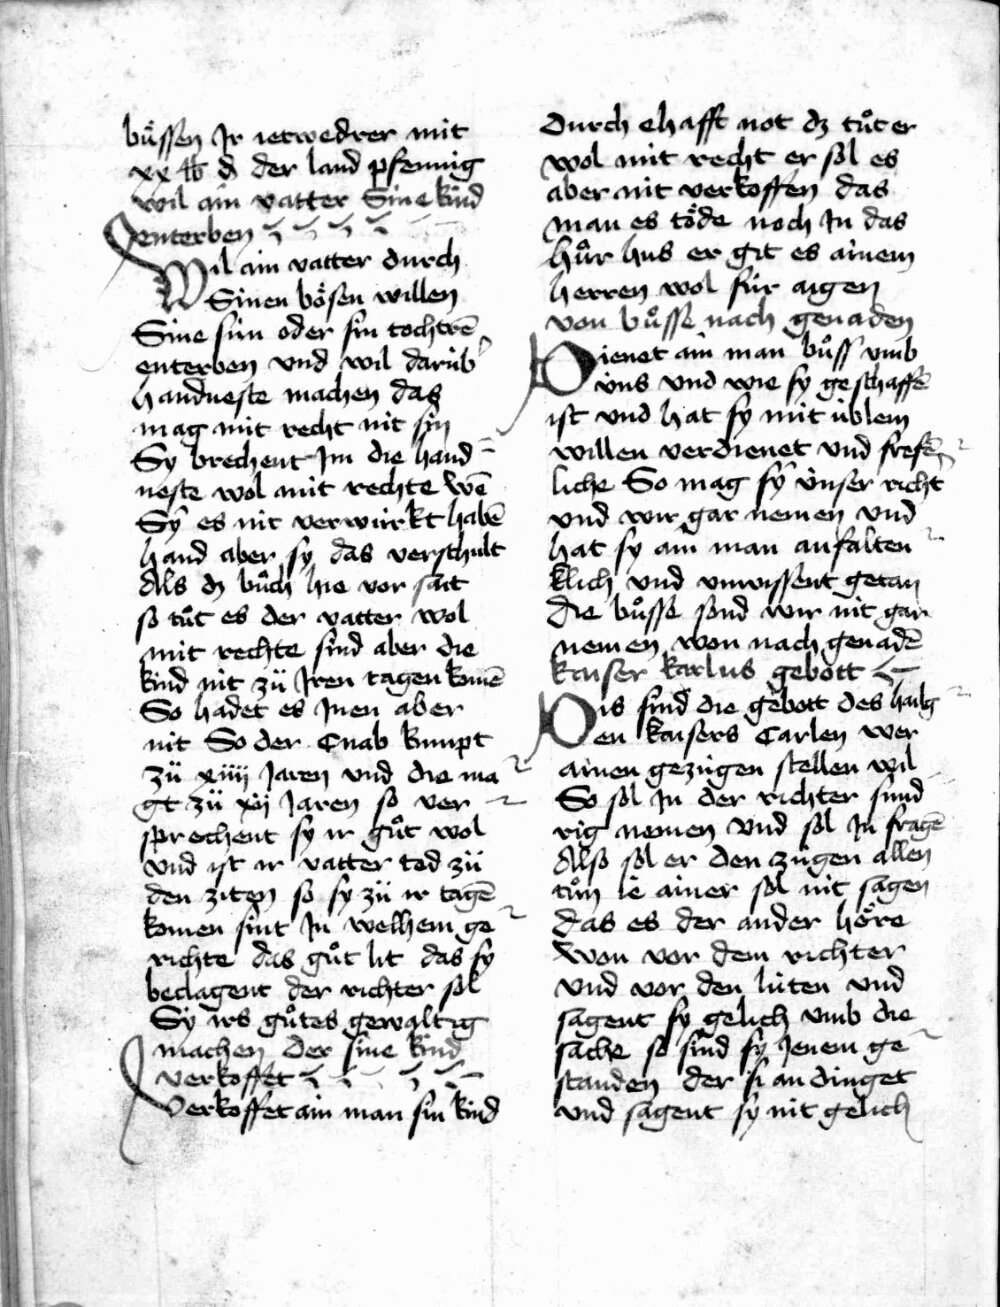 bůssen Jr ietwedrer mit
xx lb d der land pfennig
wil ain vatter Sine kind
enterben
Wil ain vatter durch
Sinen bösen willen
Sine sún oder sin tochtrē
enterben vnd wil darúb
handueste machen das
mag mit recht nit sin
Sy brechent Jm die hand
neste wol mit rechte wē
Sy es nit verwúrkt habē
hand aber sy das verschult
Als dz bůch hie vor sait
so tůt es der vatter wol
mit rechte sind aber die
kind nit zü Jren tagen komē
So hadet es Jnen aber
nit So der Cnab kumpt
zü xiiii Jaren vnd die ma
gt zü xij Jaren so ver
sprechent sy ir gůt wol
vnd ist ir vatter tod zü
den ziten so sy zü ir tagē
komen sint Jn welhem ge
richte das gůt lit das sy
beclagent der richter sol
Sy irs gůtes gewaltig
machen der sine kind
verkoffet
Verkoffet ain man sin kind
durch ehafft not dz tůt er
wol mit recht er sol es
aber nit verkoffen das
man es töde noch Jn das
hůr hus er git es ainem
herren wol fúr aigen
von bůsse nach genaden
Dienet ain man bůss vmb
úns vnd wie sy geschaffē
ist vnd hat sy mit úblem
willen verdienet vnd frefē
liche So mag sy únser richt
vnd wir gar nemen vnd
hat sy ain man anfalten
klich vnd vnwissent getan
die bůsse sond wir nit gar
nemen won nach genadē
kaiser karlus gebott
Dis sind die gebott des hailg
en kaisers Carlen wer
ainen gezúgen stellen wil
So sol Jn der richter sund
rig nemen Vnd sol Jn fragē
Also sol er den zúgen allen
tůn ie ainer sol nit sagen
das es der ander höre
Won vor dem richter
vnd vor den lúten vnd
sagent sy gelich vmb die
sache so sind sy Jenem ge
standen der si andinget
vnd sagent sy nit gelich